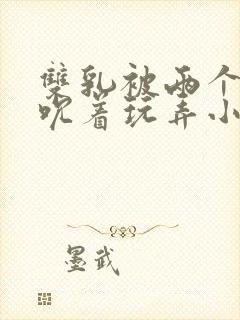 双乳被两个
吮着玩弄小
墨武